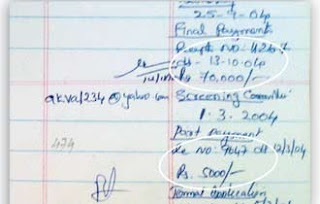 25-9-04
Final Payment
Recpt No: 4267
dt - 13-10-04
Rs 70,000/-
akva1234@yahoo.com
Screening Committee
1.3.2004
Part payment
Re No: 9047 dt 12/3/04
474
Rs. 5000/-
Formal Application